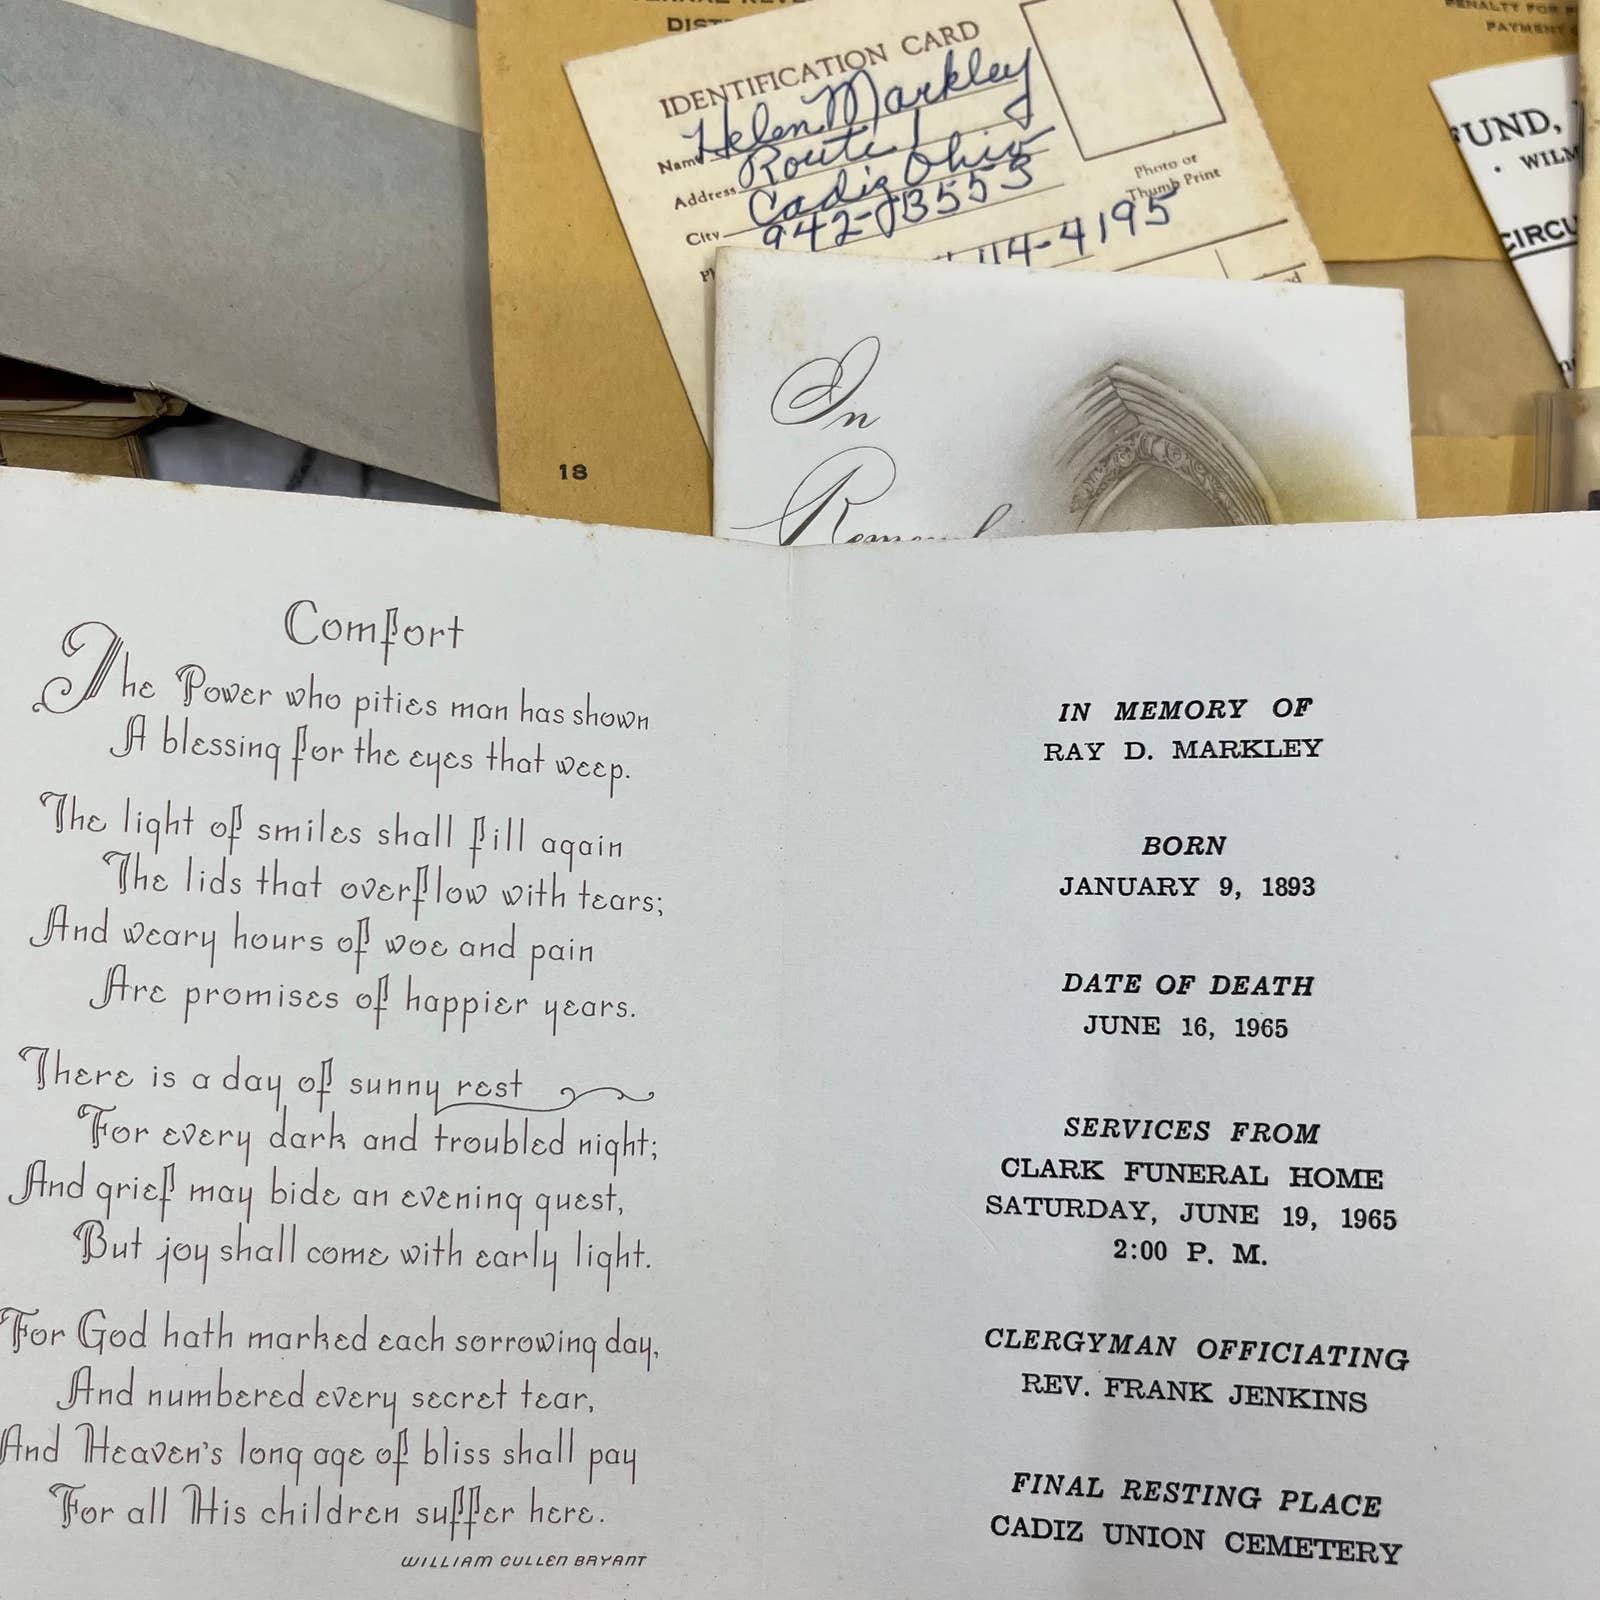 DIST
PENALTY FOR
PAYMENT
IDENTIFICATION CARD
Name Helen Markley
Address Route 1
City Cadiz Ohio
942-J3553
14-4195
Photo or
Thumb Print
FUND,
WILM
CIRCU
18
In
Comfort
The Power who pities man has shown
A blessing for the eyes that weep.
The light of smiles shall fill again
The lids that overflow with tears;
And weary hours of woe and pain
Are promises of happier years.
There is a day of sunny rest
For every dark and troubled night;
And grief may bide an evening guest,
But joy shall come with early light.
For God hath marked each sorrowing day,
And numbered every secret tear,
And Heaven's long age of bliss shall pay
For all His children suffer here.
WILLIAM CULLEN BRYANT
IN MEMORY OF
RAY D. MARKLEY
BORN
JANUARY 9, 1893
DATE OF DEATH
JUNE 16, 1965
SERVICES FROM
CLARK FUNERAL HOME
SATURDAY, JUNE 19, 1965
2:00 P. M.
CLERGYMAN OFFICIATING
REV. FRANK JENKINS
FINAL RESTING PLACE
CADIZ UNION CEMETERY